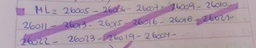 ML = 26005 - 26006 - 26007 - 26009 - 26010
26011 - 26013 - 26015 - 26016 - 26018 - 26021 -
26022 - 26023 - 26019 - 26004 -